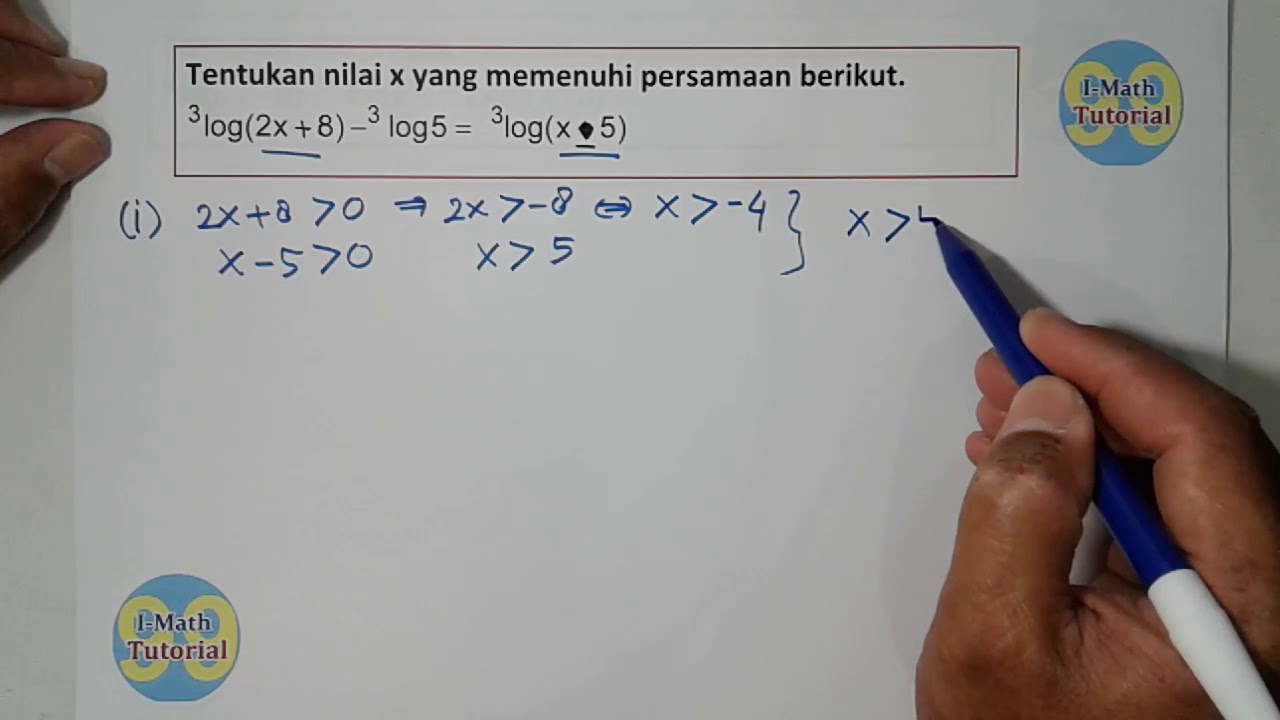 Tentukan nilai x yang memenuhi persamaan berikut.
³log(2x+8)−³log5 = ³log(x 5)
I-Math
Tutorial
(i) 2x+8 >0 ⇒ 2x >-8 ⇔ x >-4 } x >
x -5 >0 x > 5
I-Math
Tutorial